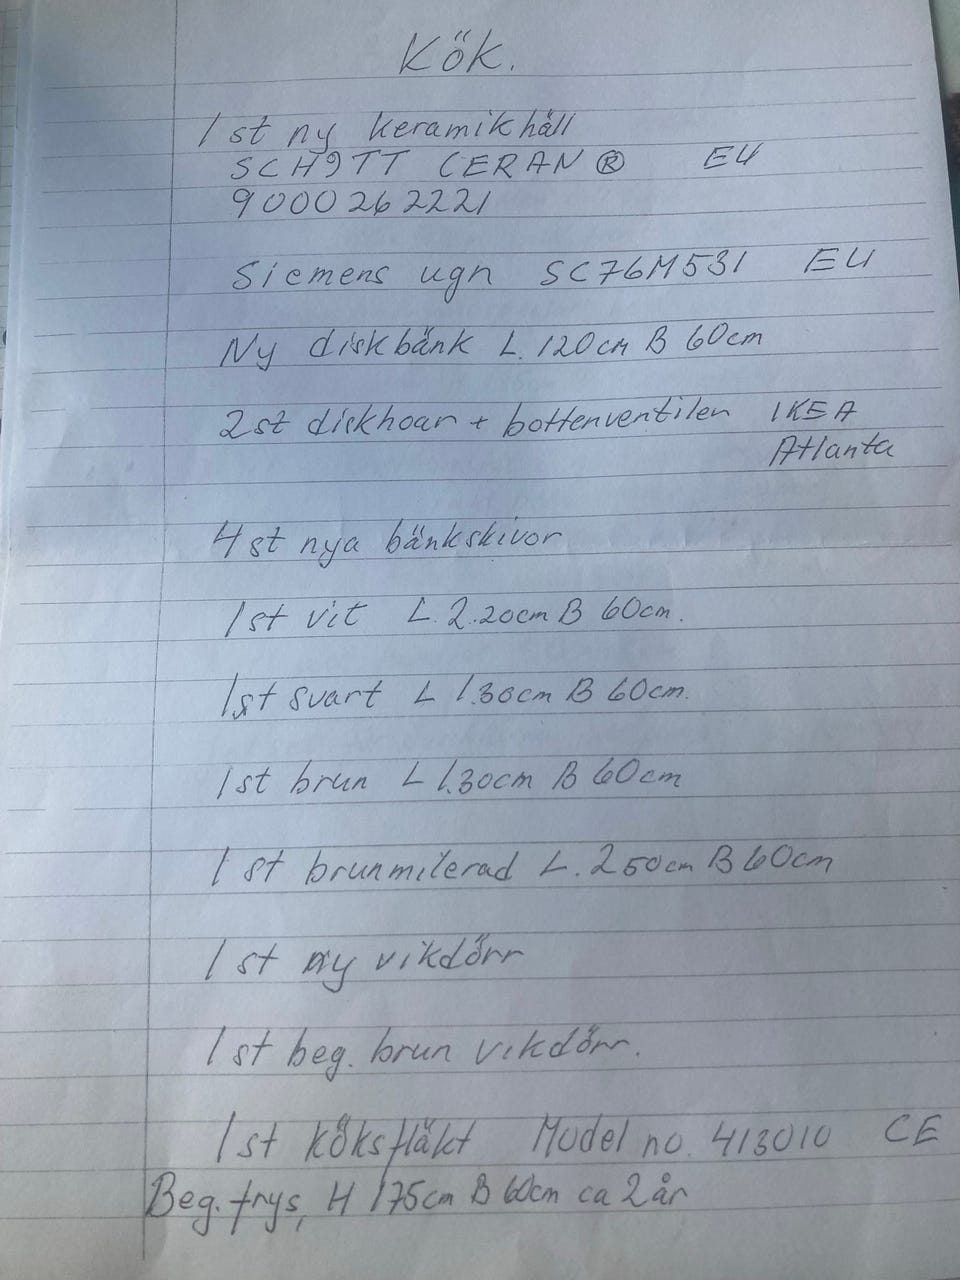 Kök.
1 st ny keramikhäll
SCHOTT CERAN ® EU
9000262221
Siemens ugn SC76M531 EU
Ny diskbänk L. 120cm B 60cm
2st diskhoar + bottenventilen IKEA
Atlanta
4 st nya bänkskivor
1st vit L. 2.20cm B 60cm.
1st svart L 1.30cm B 60cm.
1st brun L 1.30cm B 60cm
1 st brunmilerad L. 250cm B 60cm
1 st ny vikdörr
1 st beg. brun vikdörr.
1st köksfläkt Model no. 413010 CE
Beg. frys, H 175cm B 60cm ca 2 år